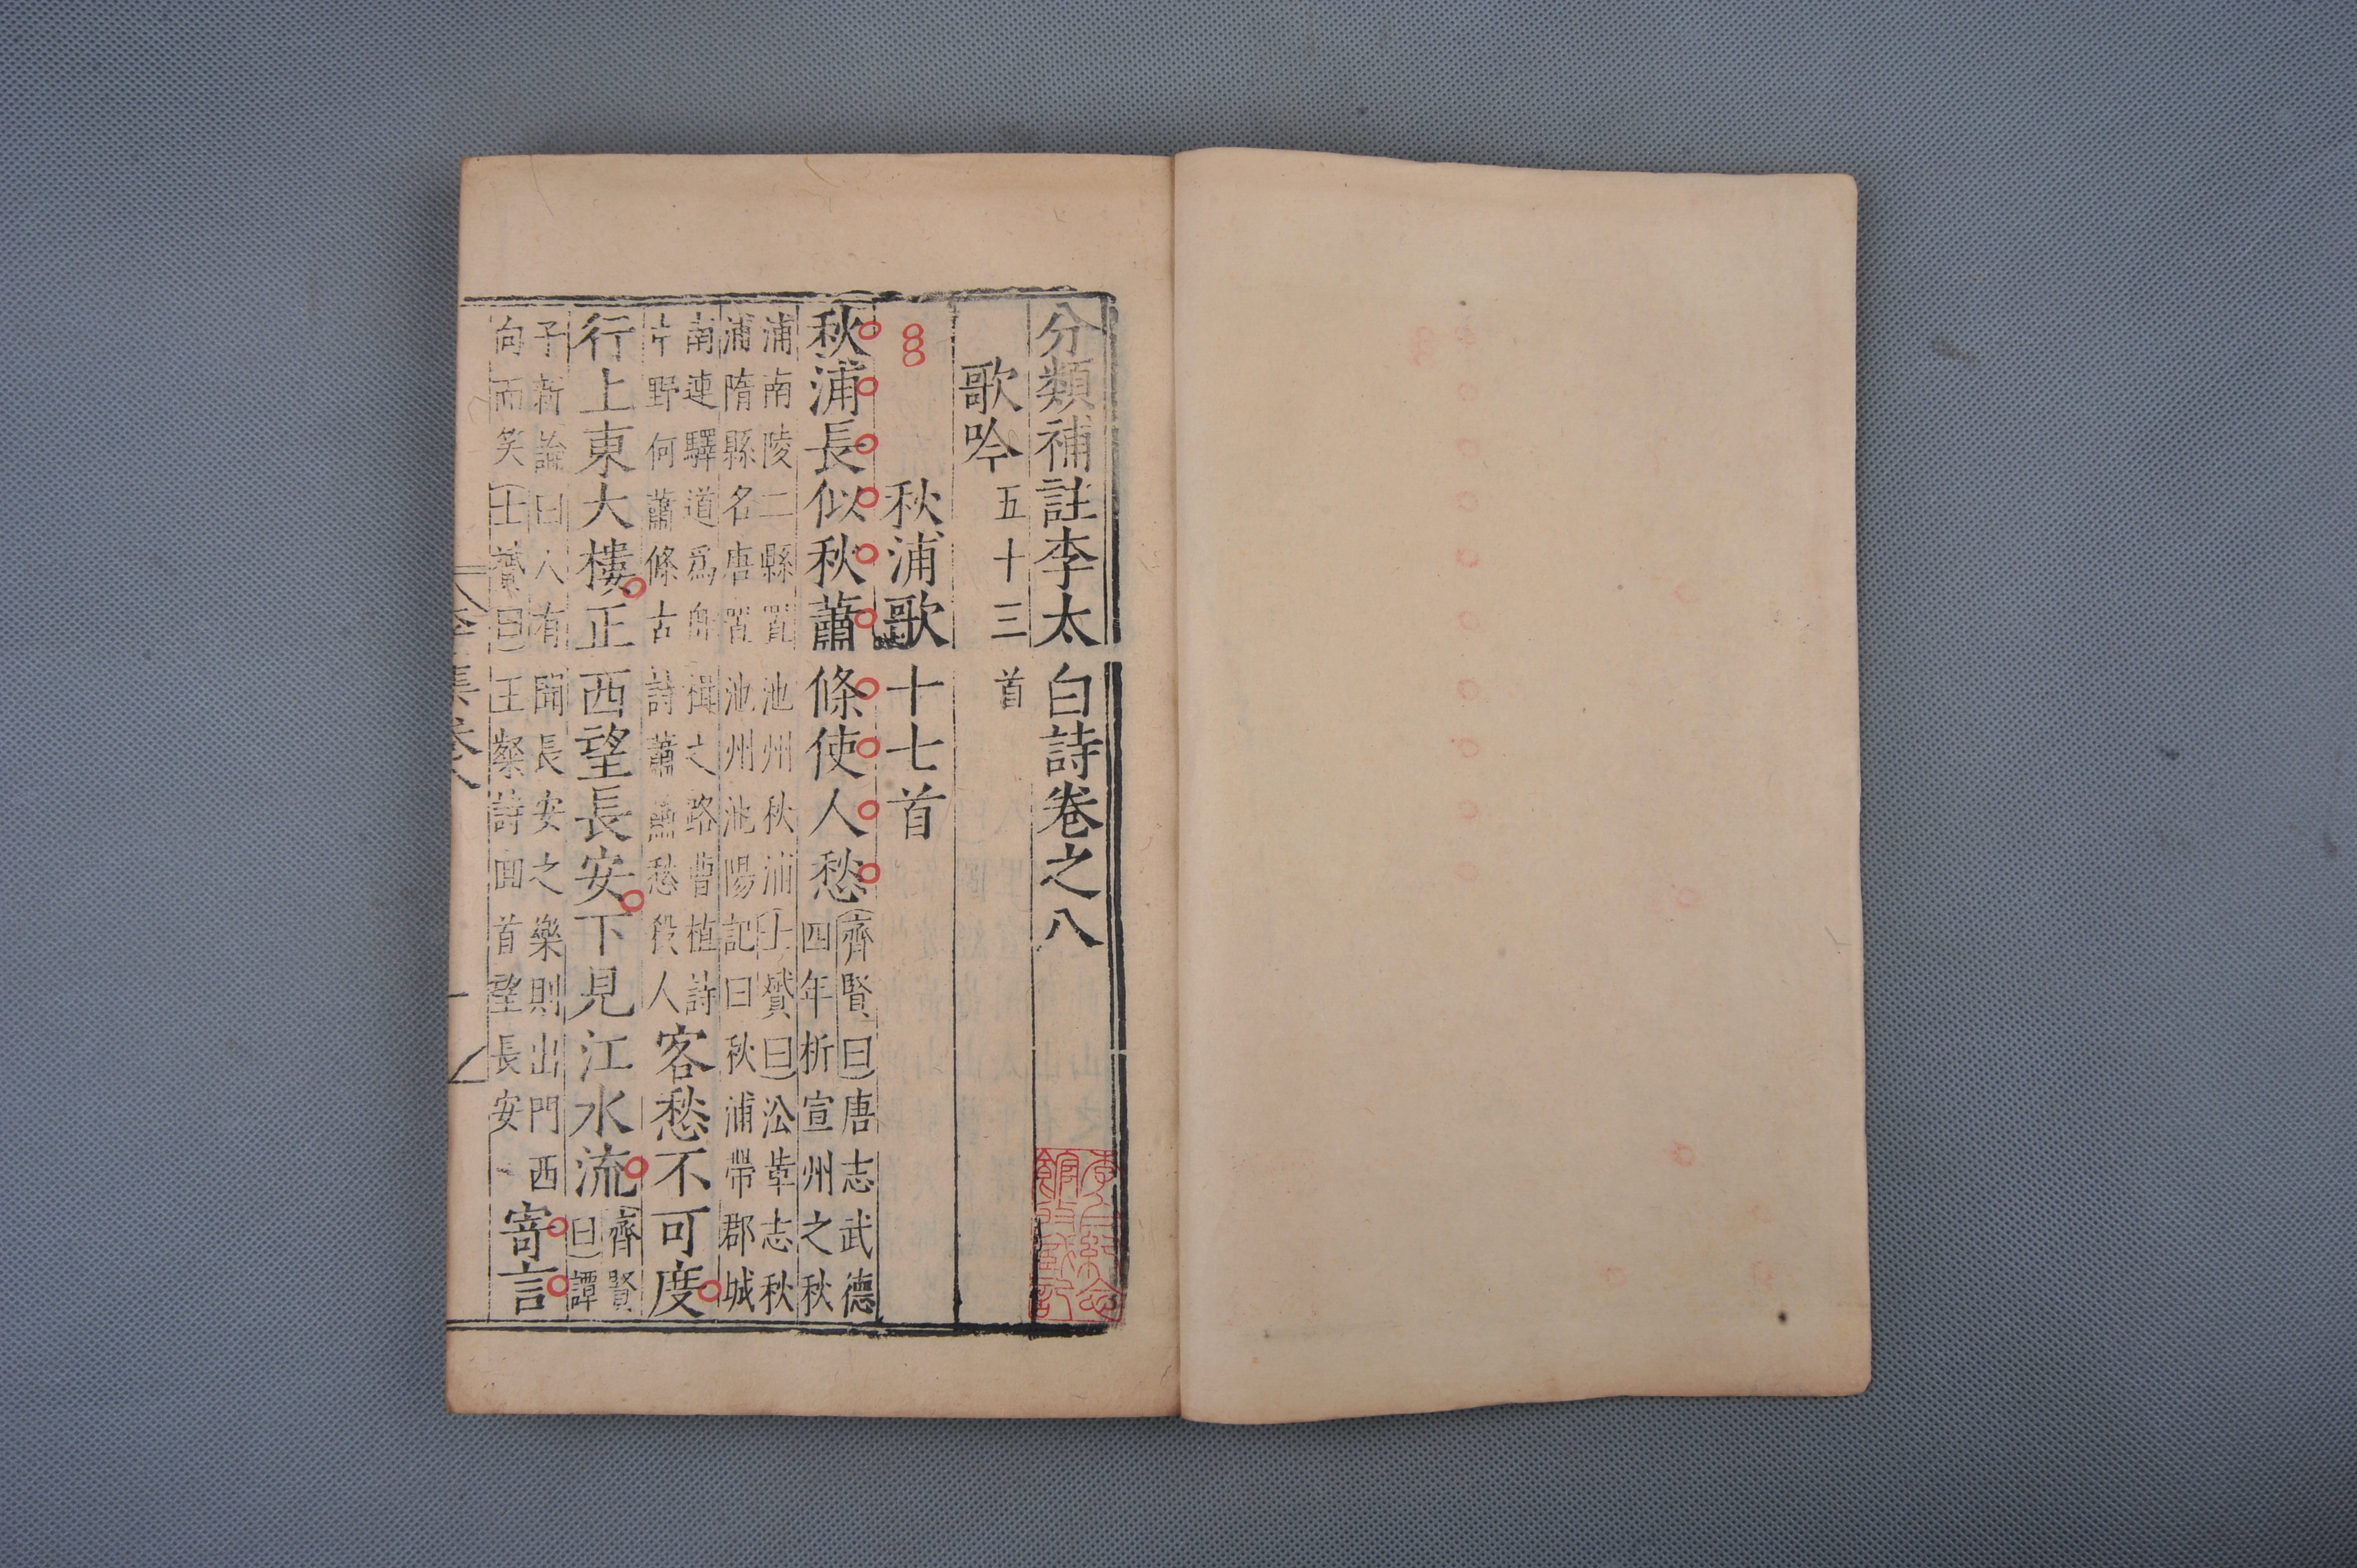 分類補註李太白詩卷之八
歌吟五十三首
秋浦歌十七首
秋浦長似秋蕭條使人愁齊賢曰唐志武德
四年析宣州之秋
浦南陵二縣置池州秋浦士贇曰㳂革志秋
浦隋縣名唐置池州池陽記曰秋浦帶郡城
南連驛道爲之路曹植詩
中野何蕭條古詩蕭蕭愁殺人客愁不可度
行上東大樓正西望長安下見江水流齊賢
曰譚
子新論曰人有聞長安之樂則出門西
向而笑士贇曰王粲詩回首望長安寄言